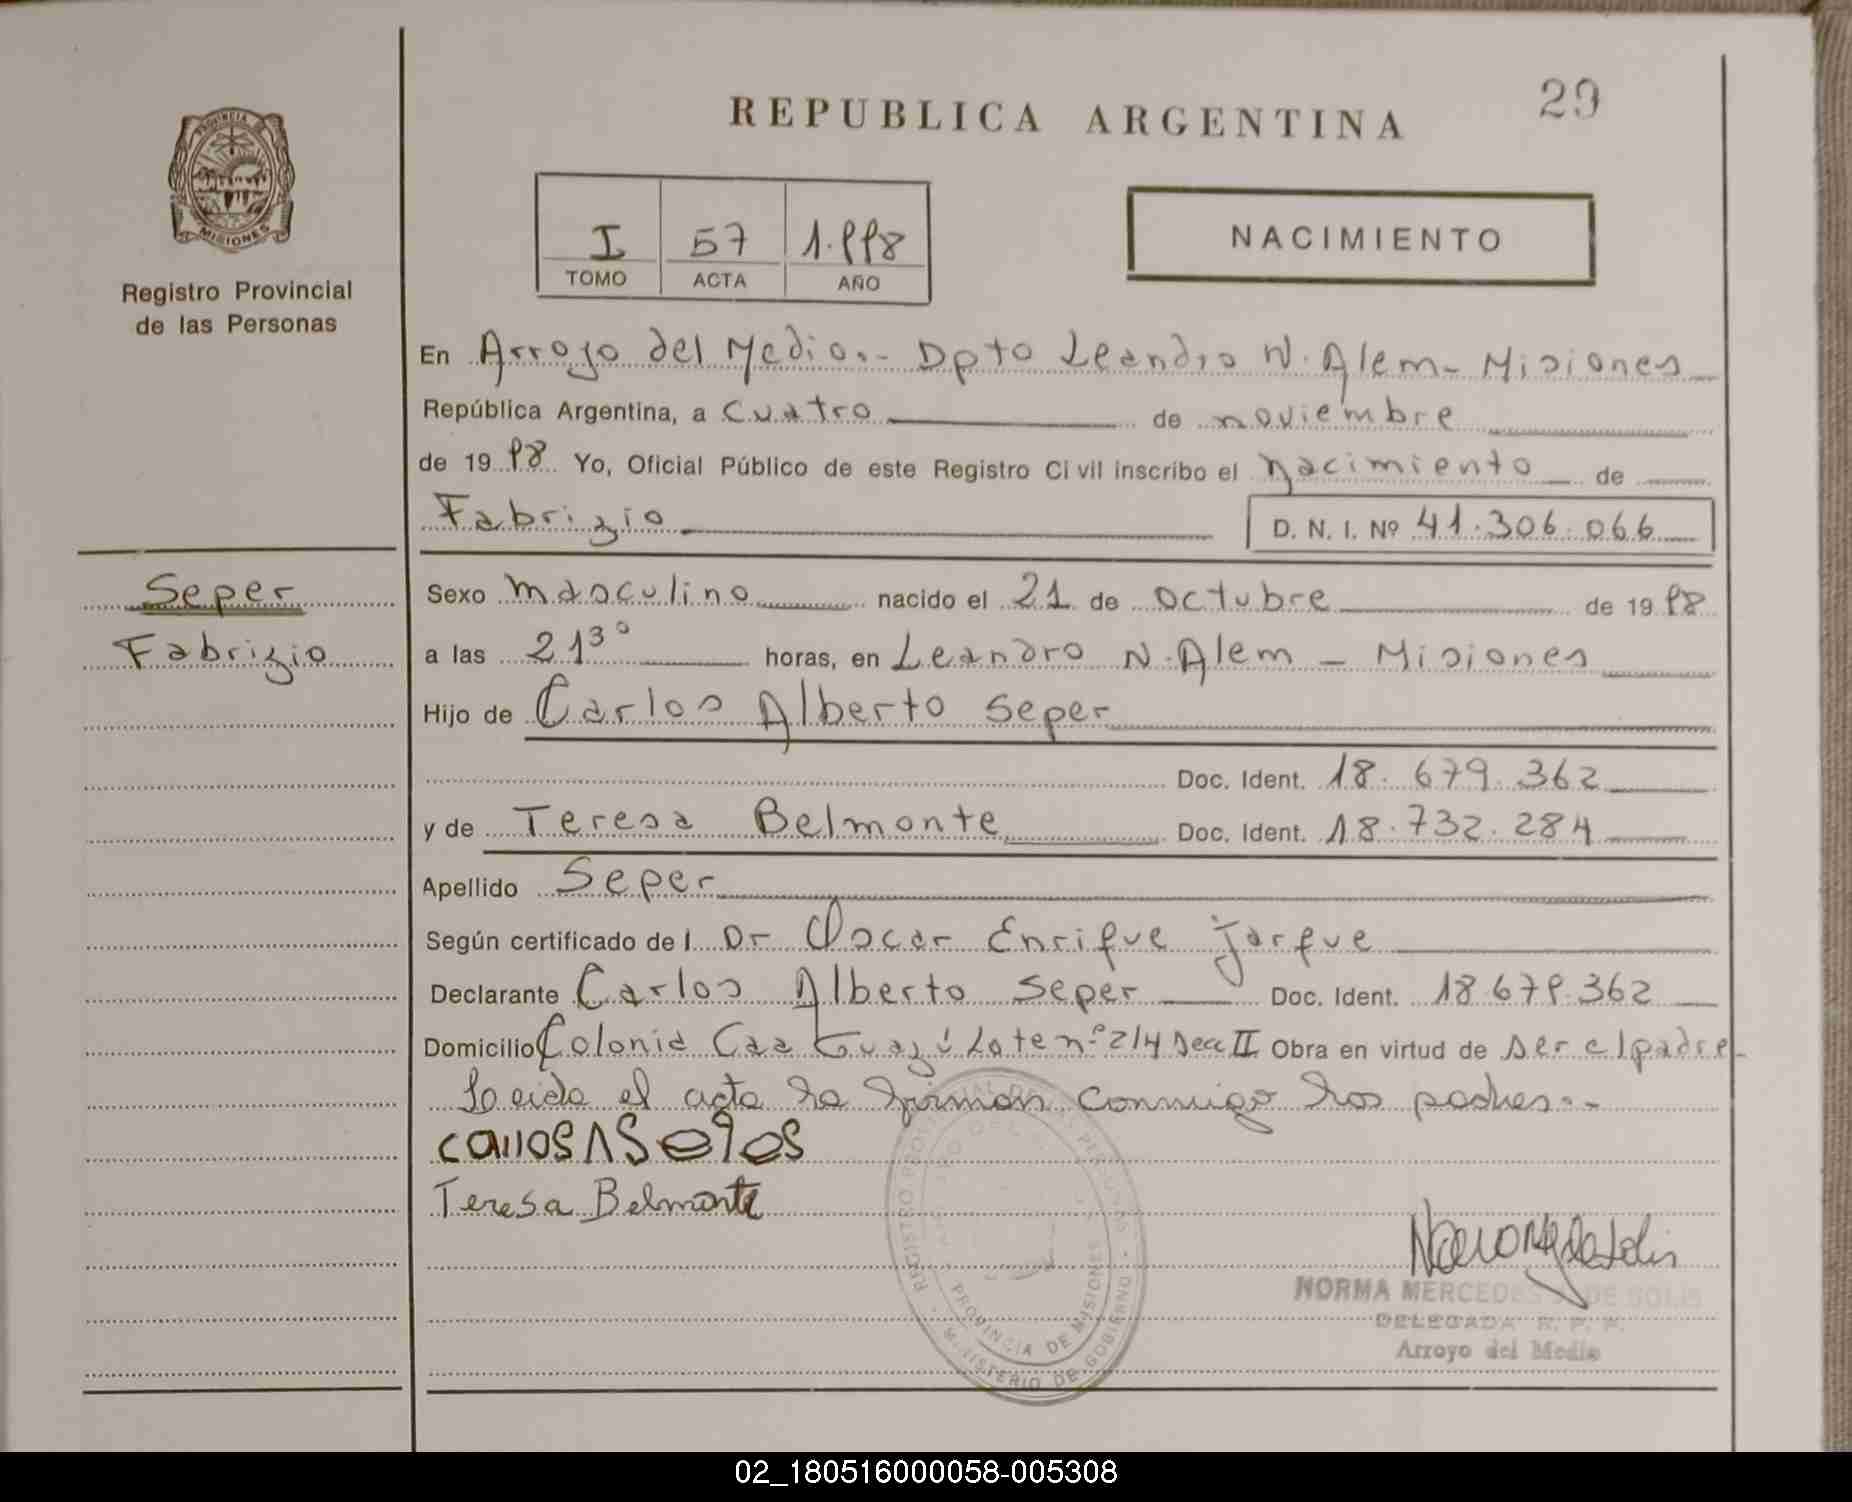 29
REPUBLICA ARGENTINA
PROVINCIA DE
MISIONES
Registro Provincial
de las Personas
I 57 1.998
TOMO ACTA AÑO
NACIMIENTO
En Arroyo del Medio.- Dpto Leandro N. Alem - Misiones
República Argentina, a cuatro de noviembre
de 19 98 Yo, Oficial Público de este Registro Civil inscribo el nacimiento de
Fabrizio D. N. I. Nº 41.306.066
Seper
Fabrizio
Sexo masculino nacido el 21 de octubre de 19 98
a las 21³° horas, en Leandro N. Alem - Misiones
Hijo de Carlos Alberto Seper
Doc. Ident. 18.679.362
y de Teresa Belmonte Doc. Ident. 18.732.284
Apellido Seper
Según certificado del Dr Oscar Enrique Jarque
Declarante Carlos Alberto Seper Doc. Ident. 18.679.362
Domicilio Colonia Caa Guazú Lote nº 214 Secc II Obra en virtud de ser el padre-
Leida el acta la firman conmigo los padres.-
Carlos A
Teresa Belmonte
REGISTRO PROVINCIAL DE LAS PERSONAS
PROVINCIA DE MISIONES
MINISTERIO DE GOBIERNO
NORMA MERCEDES DE SOLIS
DELEGADA R. P. P.
Arroyo del Medio
02_180516000058-005308